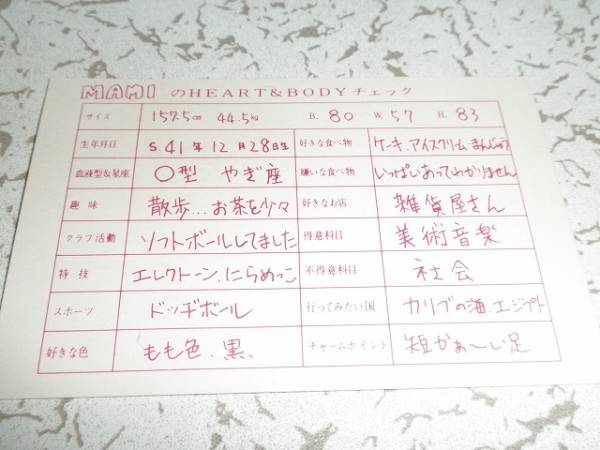 MAMI のHEART&BODYチェック
サイズ 157.5cm 44.5kg B. 80 W. 57 H. 83
生年月日 S.41年12月28日生 好きな食べ物 ケーキ、アイスクリーム まんじゅう
血液型&星座 O型 やぎ座 嫌いな食べ物 いっぱいあってわかりません
趣味 散歩…お茶を少々 好きなお店 雑貨屋さん
クラブ活動 ソフトボールしてました 得意科目 美術音楽
特技 エレクトーン、にらめっこ 不得意科目 社会
スポーツ ドッヂボール 行ってみたい国 カリブの海、エジプト
好きな色 もも色、黒、 チャームポイント 短かぁ〜い足